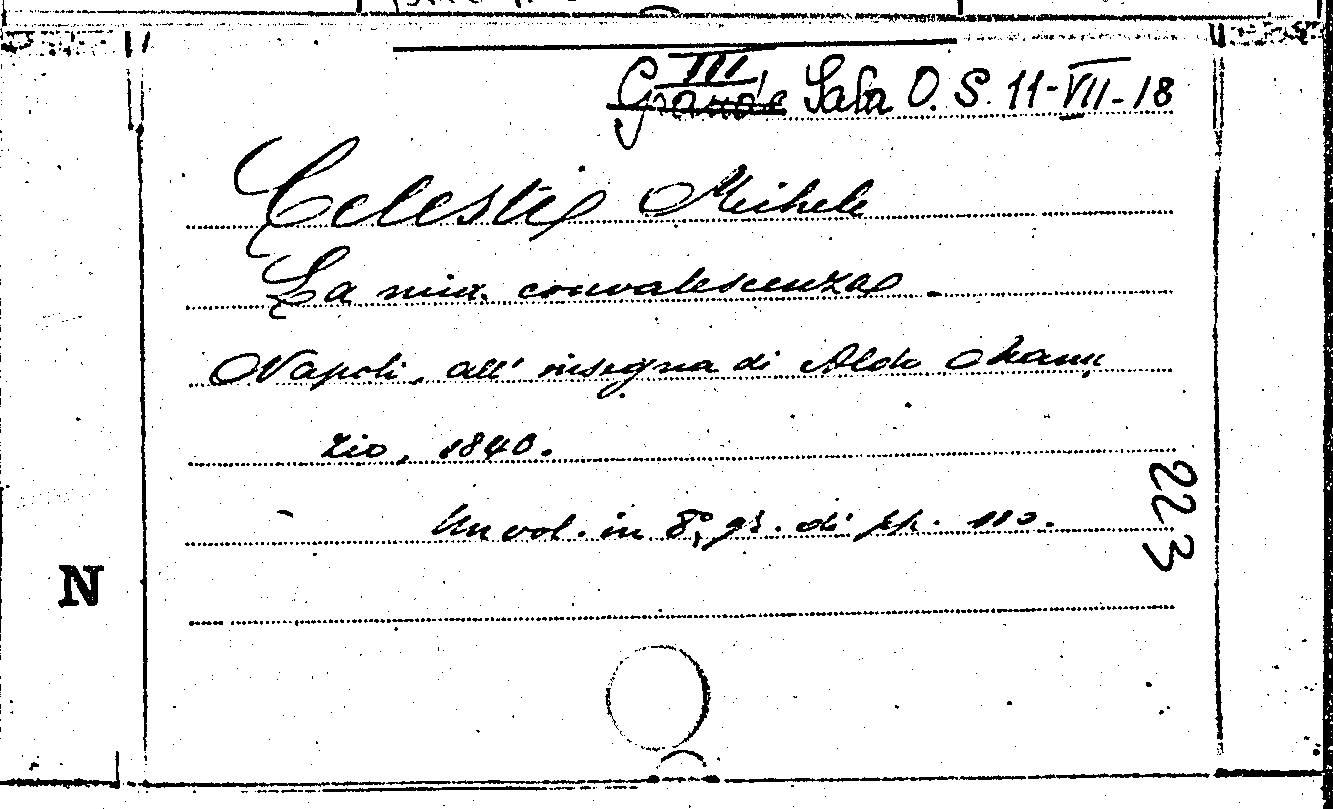 III
Grande Sala O. S. 11-VII-18
Celesti Michele
La mia convalescenza.
Napoli, all' insegna di Aldo Manu
zio, 1840.
Un vol. in 8°, gr. di pp. 110.
223
N